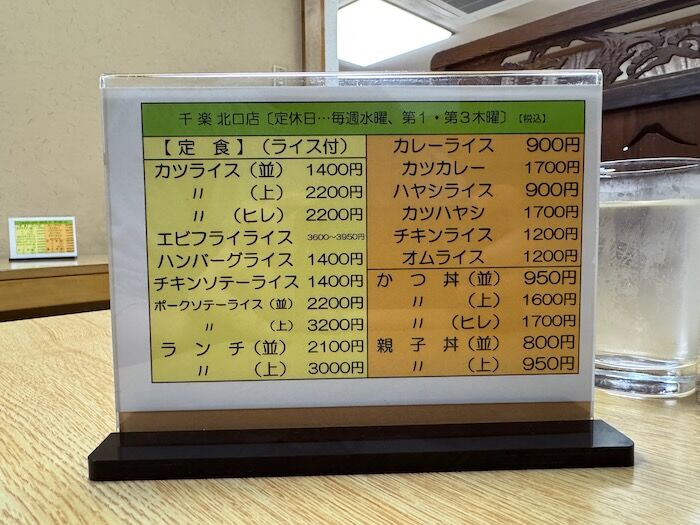 千楽 北口店〔定休日…毎週水曜、第1・第3木曜〕【税込】
【定食】(ライス付)
カツライス(並) 1400円
〃 (上) 2200円
〃 (ヒレ) 2200円
エビフライライス 3600〜3950円
ハンバーグライス 1400円
チキンソテーライス 1400円
ポークソテーライス(並) 2200円
〃 (上) 3200円
ランチ(並) 2100円
〃 (上) 3000円
カレーライス 900円
カツカレー 1700円
ハヤシライス 900円
カツハヤシ 1700円
チキンライス 1200円
オムライス 1200円
かつ丼(並) 950円
〃 (上) 1600円
〃 (ヒレ) 1700円
親子丼(並) 800円
〃 (上) 950円